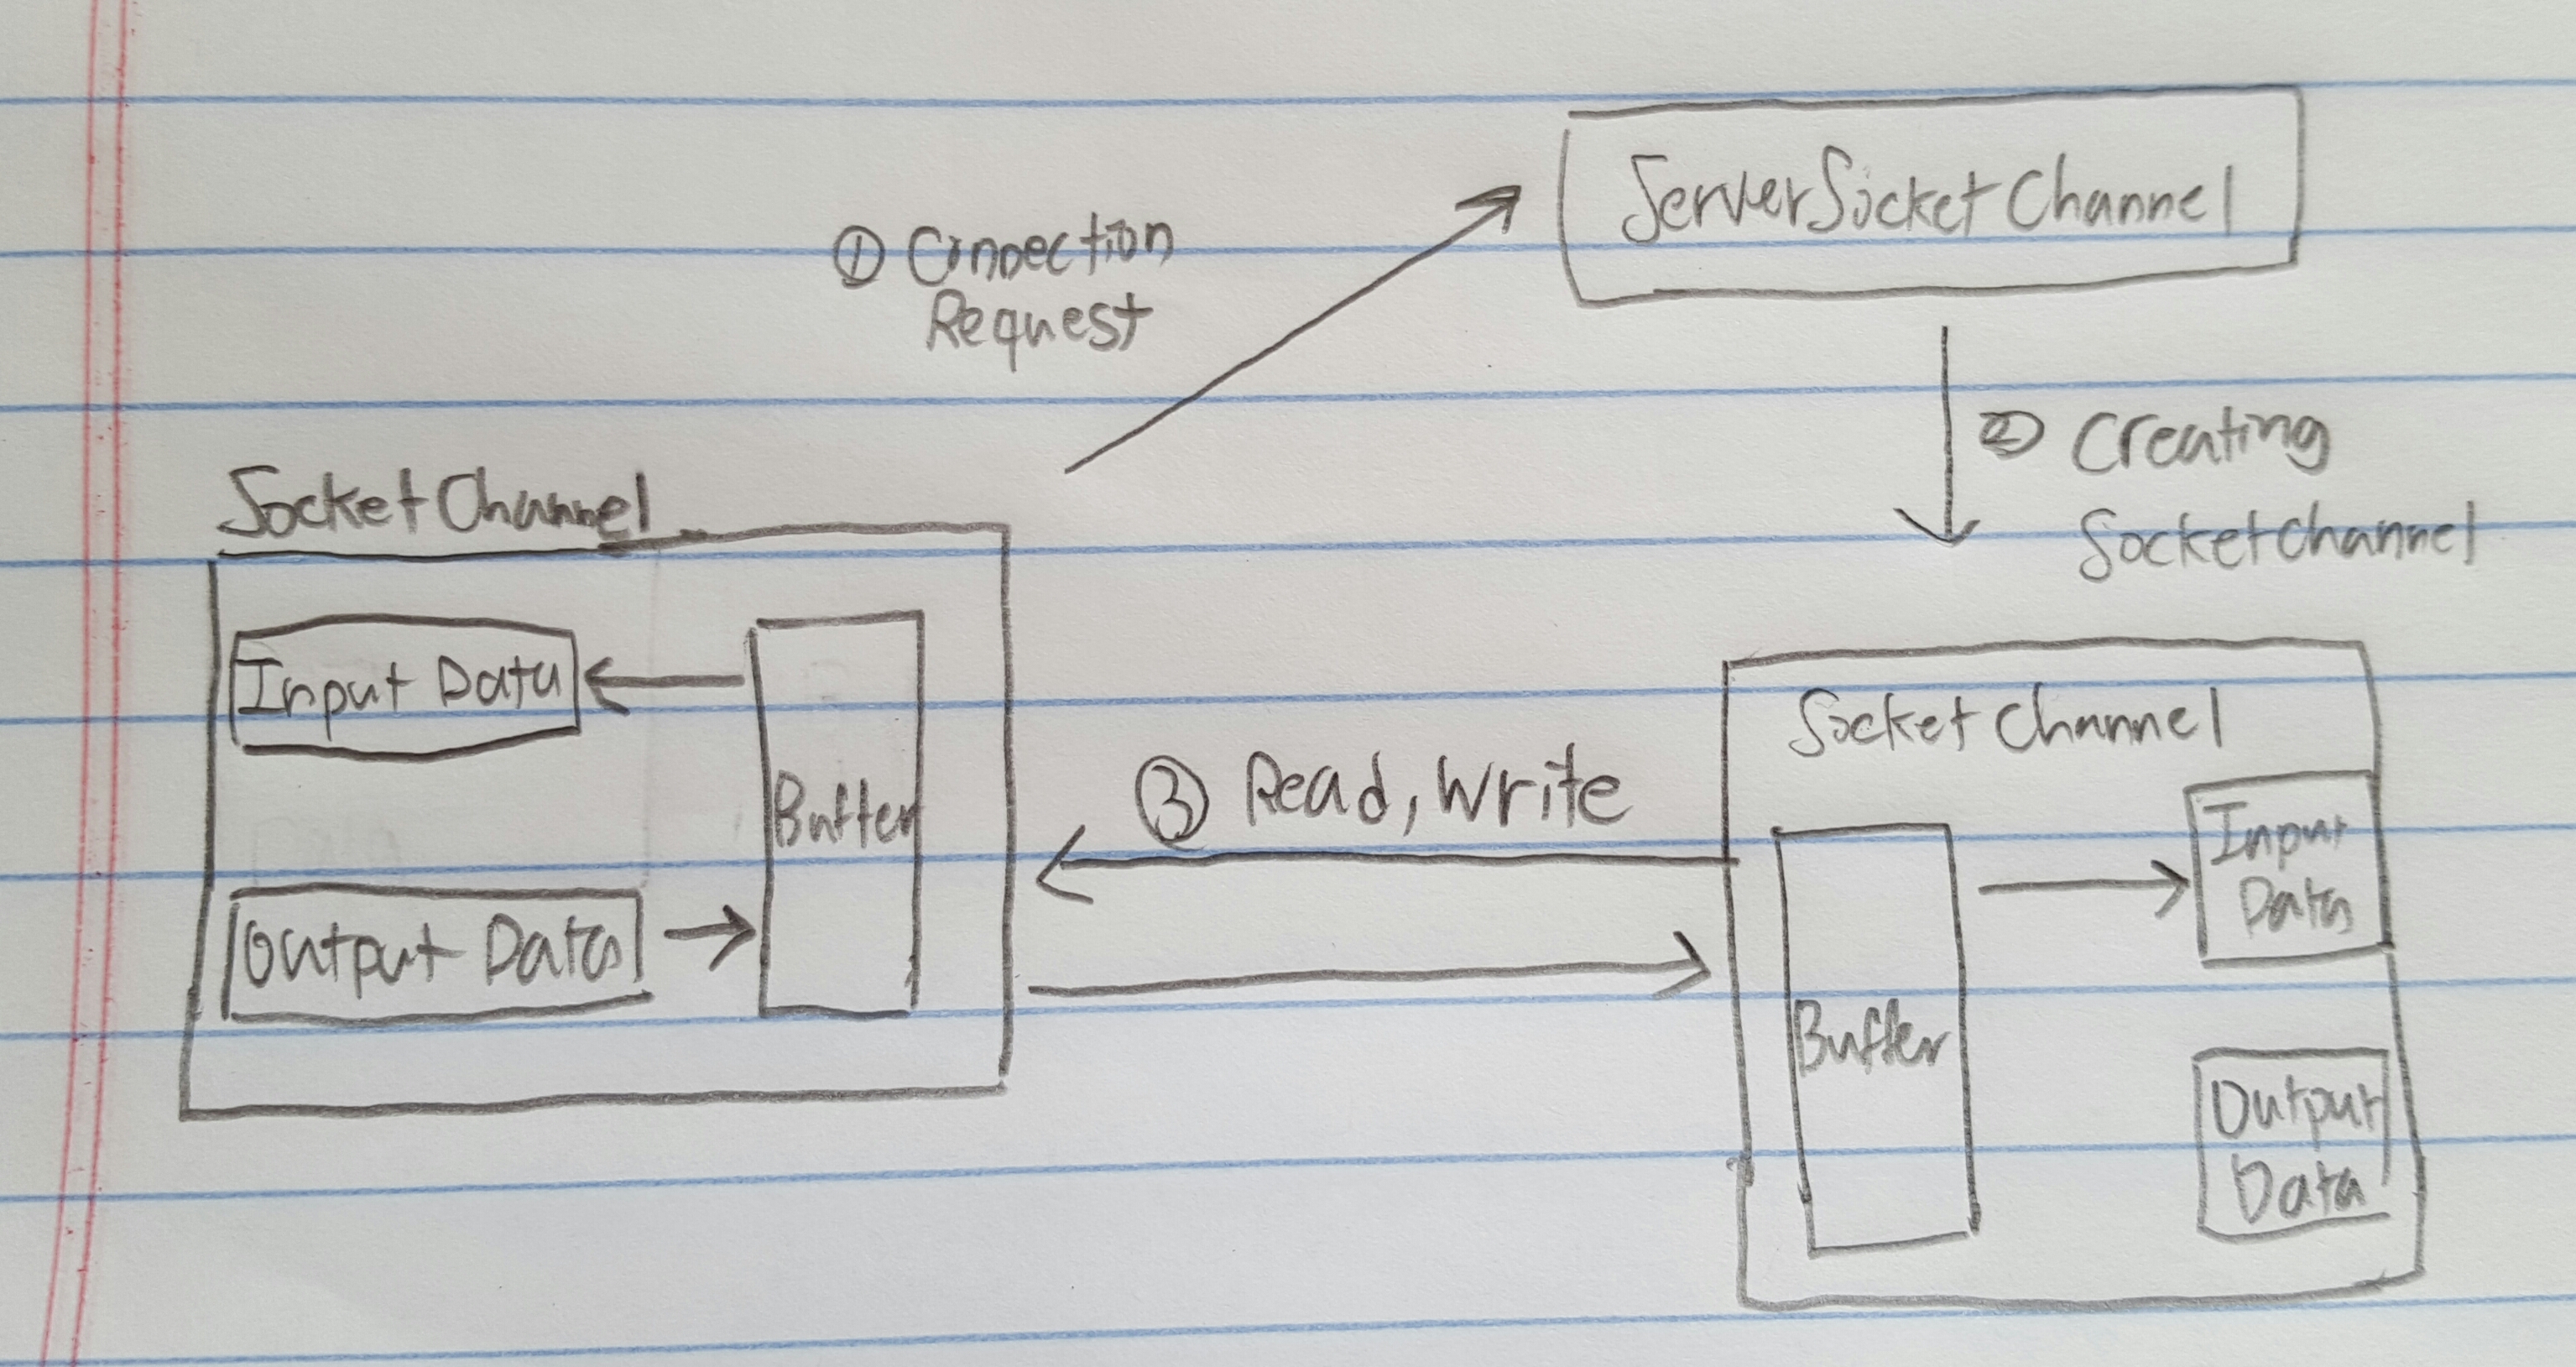 ServerSocket Channel
① Connection
Request
② Creating
Socketchannel
Socket Channel
Input Data
Buffer
Output Data
③ Read, Write
Socket Channel
Input
Data
Buffer
Output
Data